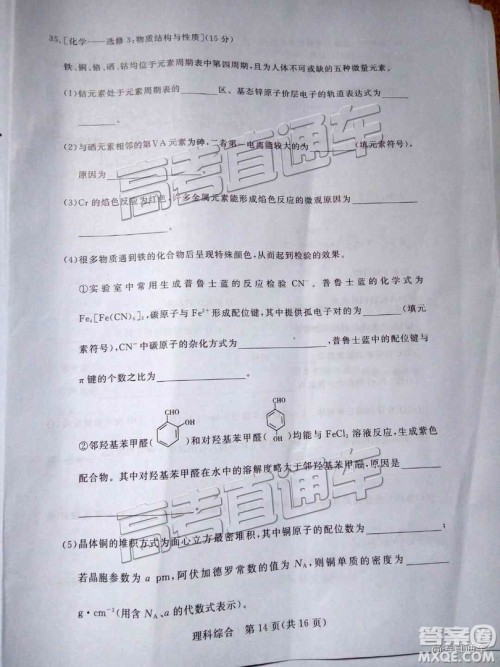 35.[化学——选修3:物质结构与性质](15分)
铁、铜、铬、硒、钴均位于元素周期表中第四周期,且为人体不可或缺的五种微量元素。
(1)钴元素处于元素周期表的______区、基态锌原子价层电子的轨道表达式为______
______。
(2)与硒元素相邻的第ⅤA元素为砷,二者第一电离能较大的为______(元素符号),
原因为______。
(3)Cr的焰色反应为红色,许多金属元素能形成焰色反应的微观原因为______
______。
(4)很多物质遇到铁的化合物后呈现特殊颜色,从而起到检验的效果。
①实验室中常用生成普鲁士蓝的反应检验CN⁻。普鲁士蓝的化学式为
Fe₄[Fe(CN)₆]₃,碳原子与Fe²⁺形成配位键,其中提供孤电子对的为______(填元
素符号),CN⁻中碳原子的杂化方式为______,普鲁士蓝中的配位键与
π键的个数之比为______。
CHO
OH
CHO
OH
②邻羟基苯甲醛()和对羟基苯甲醛()均能与FeCl₃溶液反应,生成紫色
配合物。其中对羟基苯甲醛在水中的溶解度略大于邻羟基苯甲醛,原因是______
______。
(5)晶体铜的堆积方式为面心立方最密堆积,其中铜原子的配位数为______,
若晶胞参数为a pm,阿伏加德罗常数的值为Nₐ,则铜单质的密度为______
g·cm⁻³(用含Nₐ、a的代数式表示)。
理科综合 第14页(共16页)
高考直通车
高考直通车
答案圈
MXQE.COM